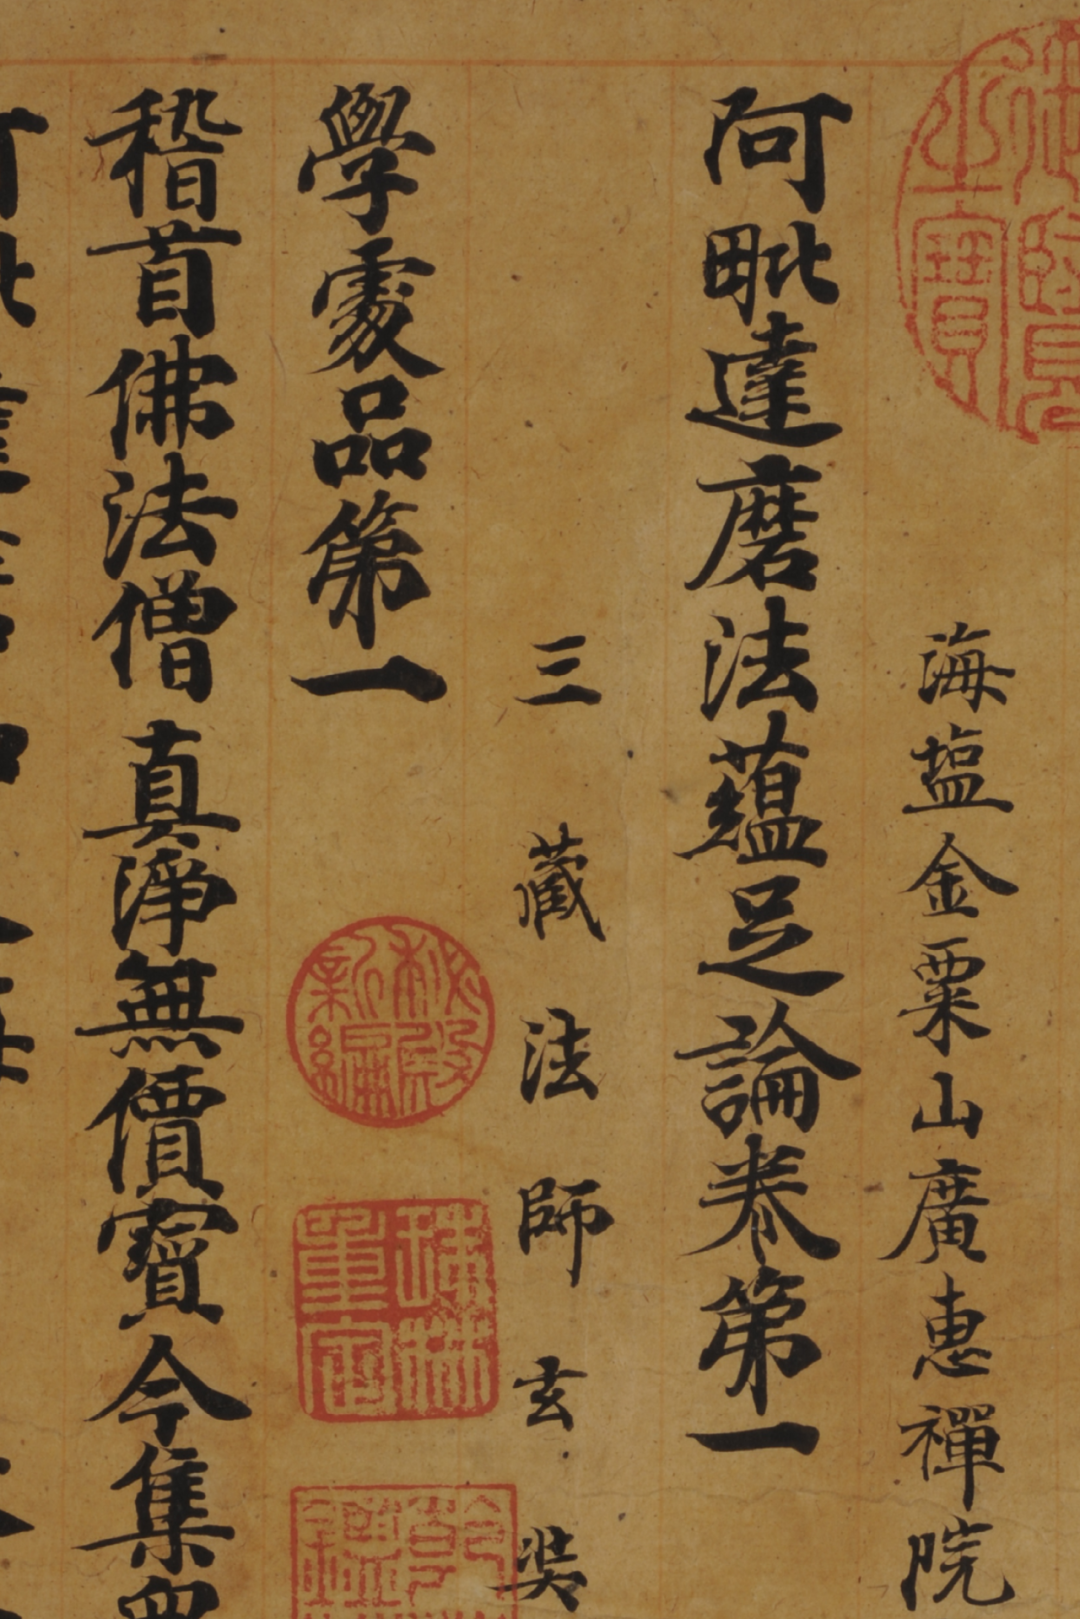 海塩金粟山廣惠禪院
阿毗達磨法蘊足論卷第一
三藏法師玄奘
學處品第一
秘殿新編
珠林重定
稽首佛法僧真淨無價寶今集衆